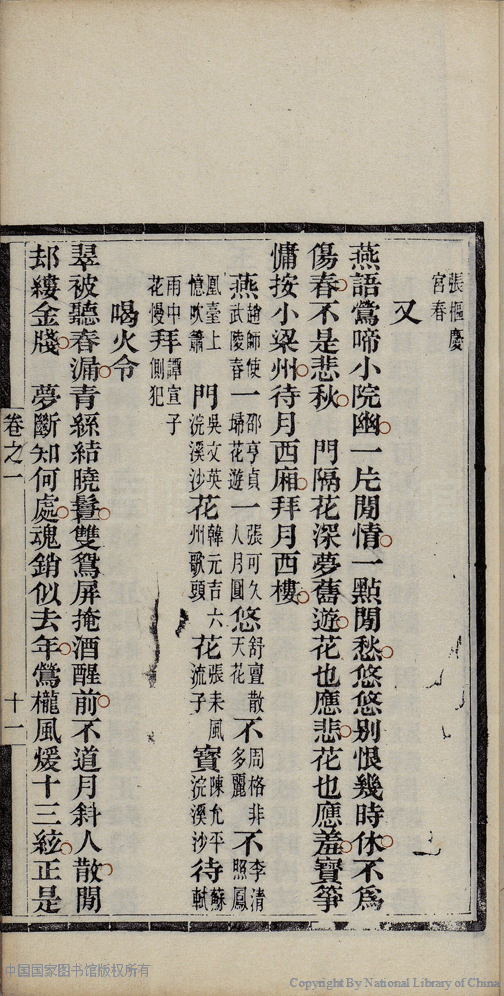 張樞慶
宮春
又
燕語鶯啼小院幽一片閒情一點閒愁悠悠别恨幾時休不爲
傷春不是悲秋　門隔花深夢舊遊花也應悲花也應羞寶箏
慵按小梁州待月西廂拜月西樓
燕趙師使武陵春一邵亨貞埽花遊一張可久人月圓悠舒亶散天花不周格非多麗不李清照鳳
凰臺上憶吹簫門吳文英浣溪沙花韓元吉六州歌頭花張耒風流子寶陳允平浣溪沙待蘇軾
雨中花慢拜譚宣子側犯
喝火令
翠被聽春漏青絲結曉鬟雙鴛屏掩酒醒前不道月斜人散閒
却縷金牋　夢斷知何處魂銷似去年鶯櫳風煖十三絃正是
卷之一
十一
中国国家图书馆版权所有
Copyright By National Library of China